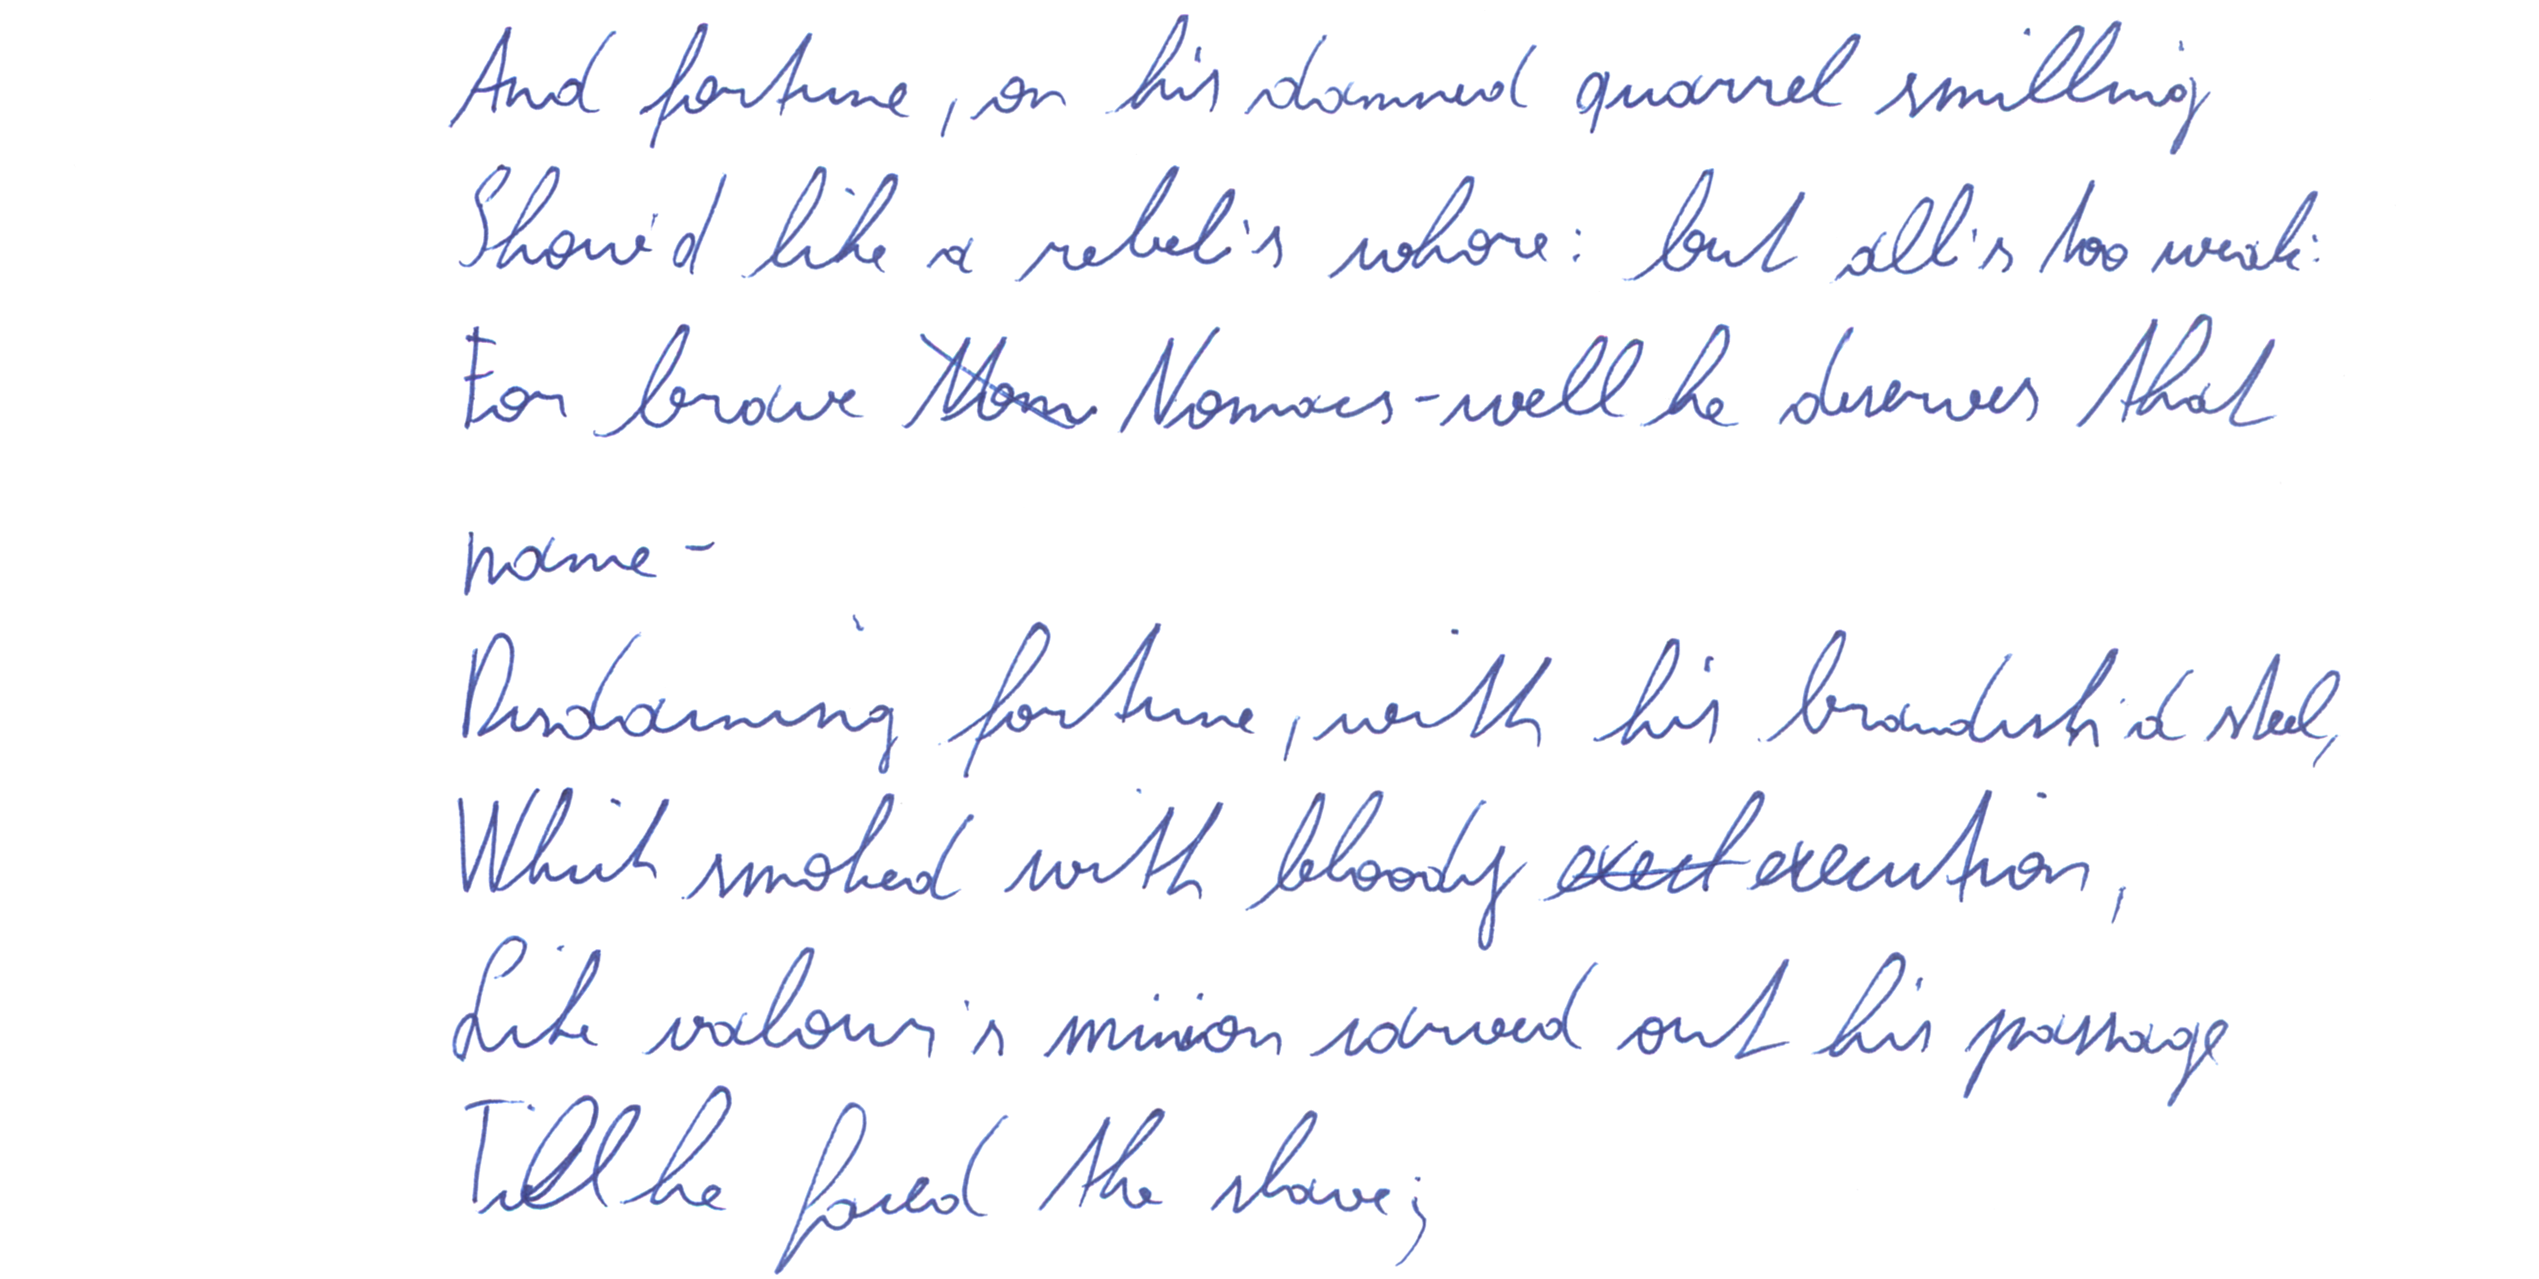 And fortune, on his damned quarrel smilling
Show'd like a rebel's whore: but all's too weak:
For brave Nomaes-well he deserves that
name-
Disdaining fortune, with his brandish'd steel,
Which smoked with bloody execution,
Like valour's minion carved out his passage
Till he faced the slave;